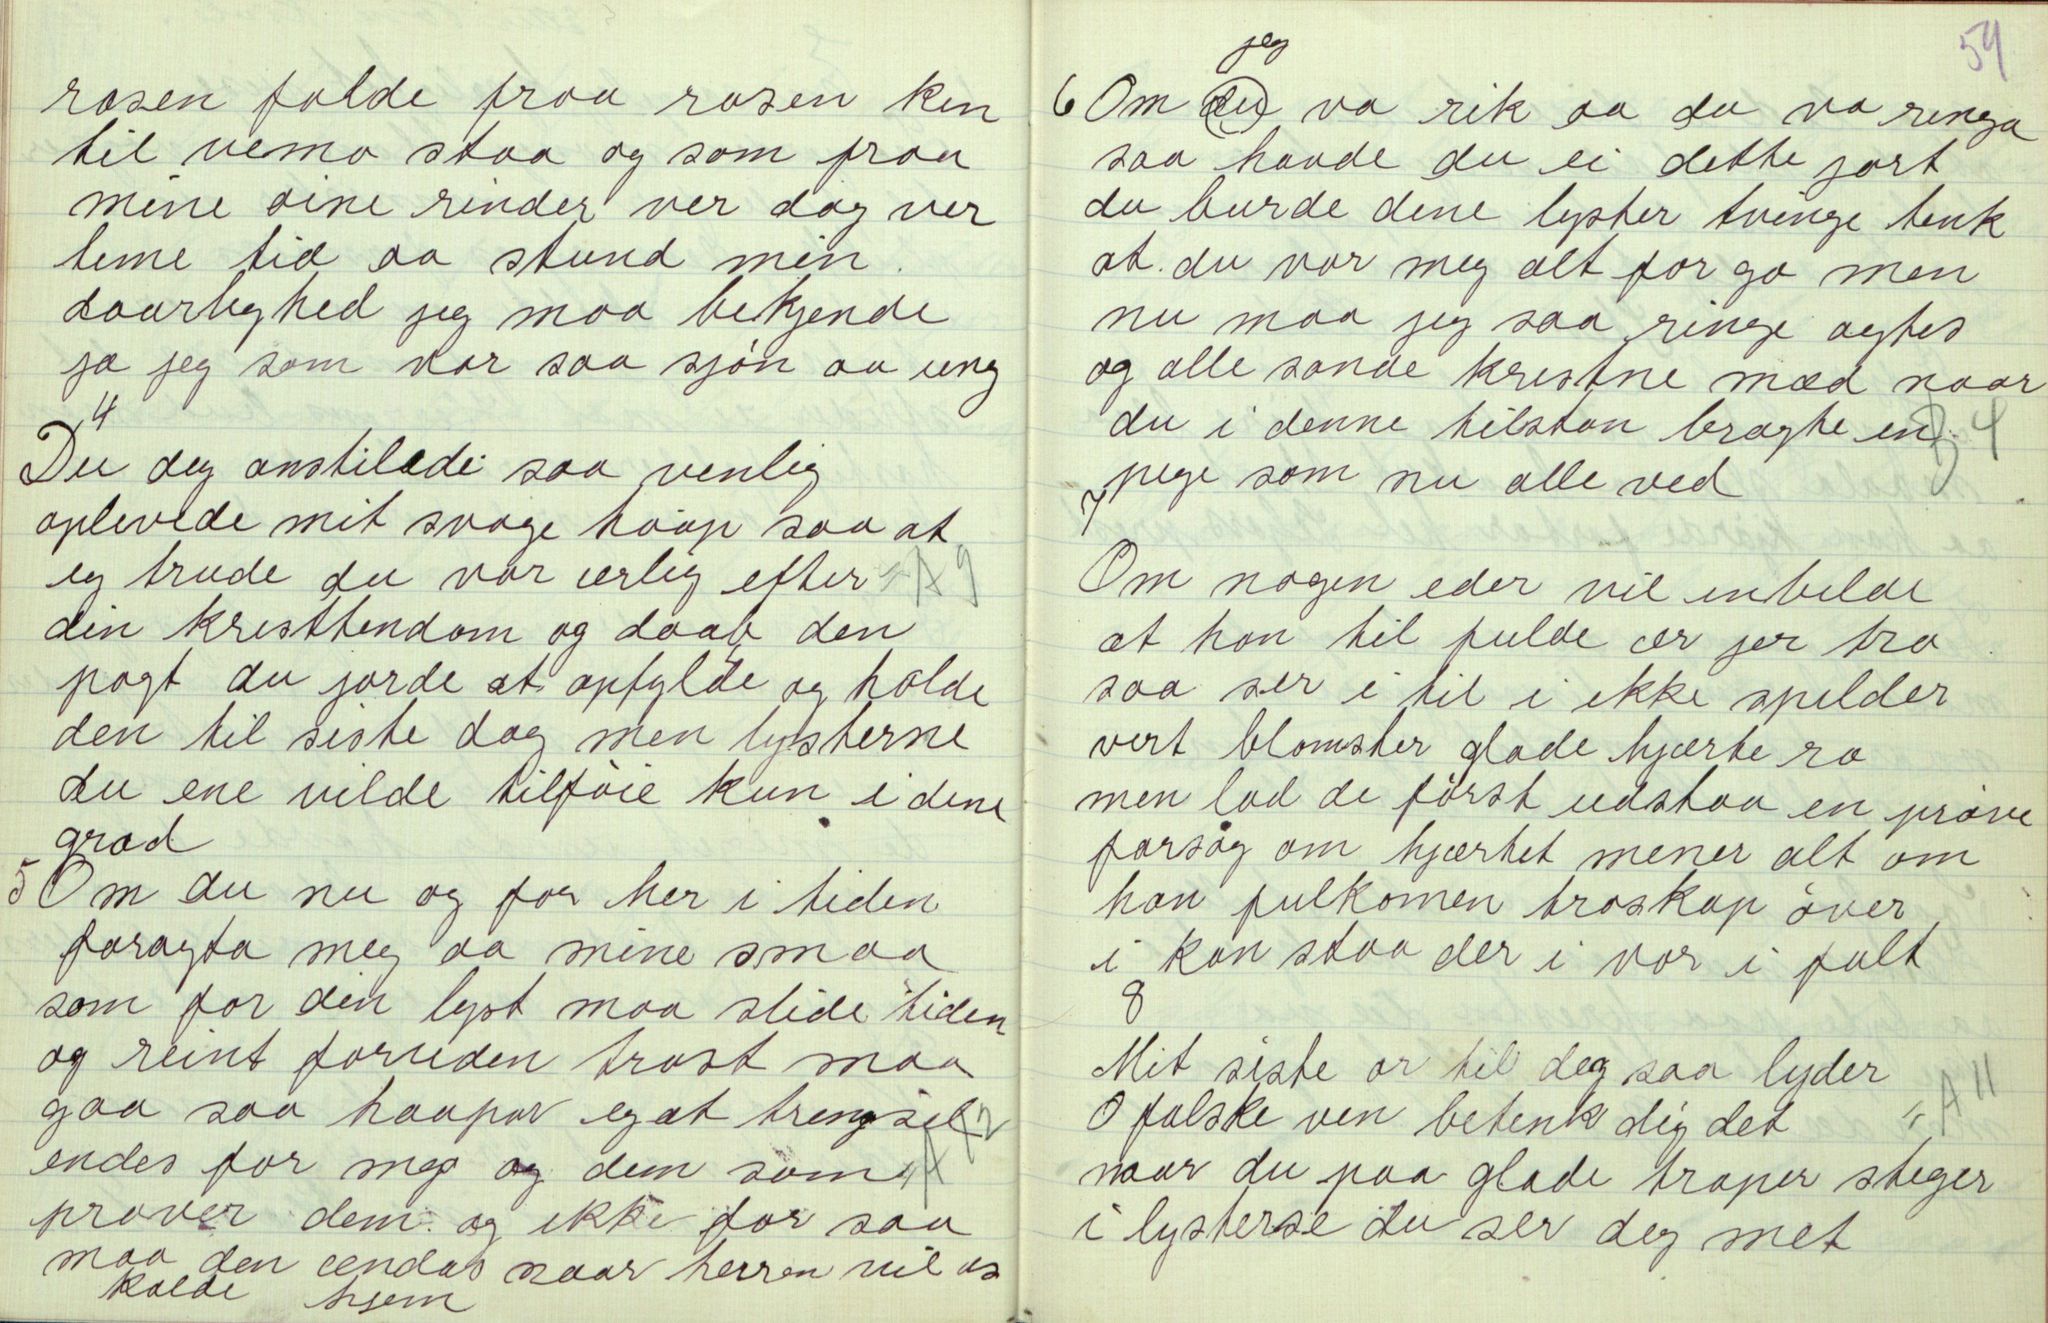 rosen folde fraa rosen ken
til vemo staa og som fraa
mine öine rinder ver dag ver
time tid aa stund min
daarlyghed jeg maa bekjende
ja jeg som var saa sjön aa ung
4
Du deg anstilede saa venlig
oplevede mit svage haap saa at
eg trude du var ærlig efter = A 9
din kresttendom og daab den
pagt du jorde at opfylde og holde
den til siste dag men lysterne
du ene vilde tilföie kun i dine
grad
5 Om du nu og for her i tiden
foragta meg aa mine smaa
som for din lyst maa slide tiden
og reint foruden trøst maa
gaa saa haapar eg at trengsel
endes for meg og dem som = A 12
prøver dem og ikke for saa
maa den ændas naar herren vil os
kalde hjem
54
jeg
6 Om du va rik aa du va ringa
saa havde du ei dette jort
du burde dine lyster tvinge tenk
at du var meg alt for go men
nu maa jeg saa ringe agtes
og alle sande kristne mæd naar
du i denne tilstan bragte en B 4
pige som nu alle ved
7
Om nogen eder vil inbilde
at han til fulde ær jer tro
saa ser i til i ikke spilder
vert blomster glade hjærte ro
men lad de först udstaa en pröve
forsög om hjærtet mener alt om
han fulkomen troskap över
i kan staa der i var i falt
8
Mit siste or til deg saa lyder
O falske ven betenk dig det = A 11
naar du paa glade traper steger
i lysterse du ser deg met